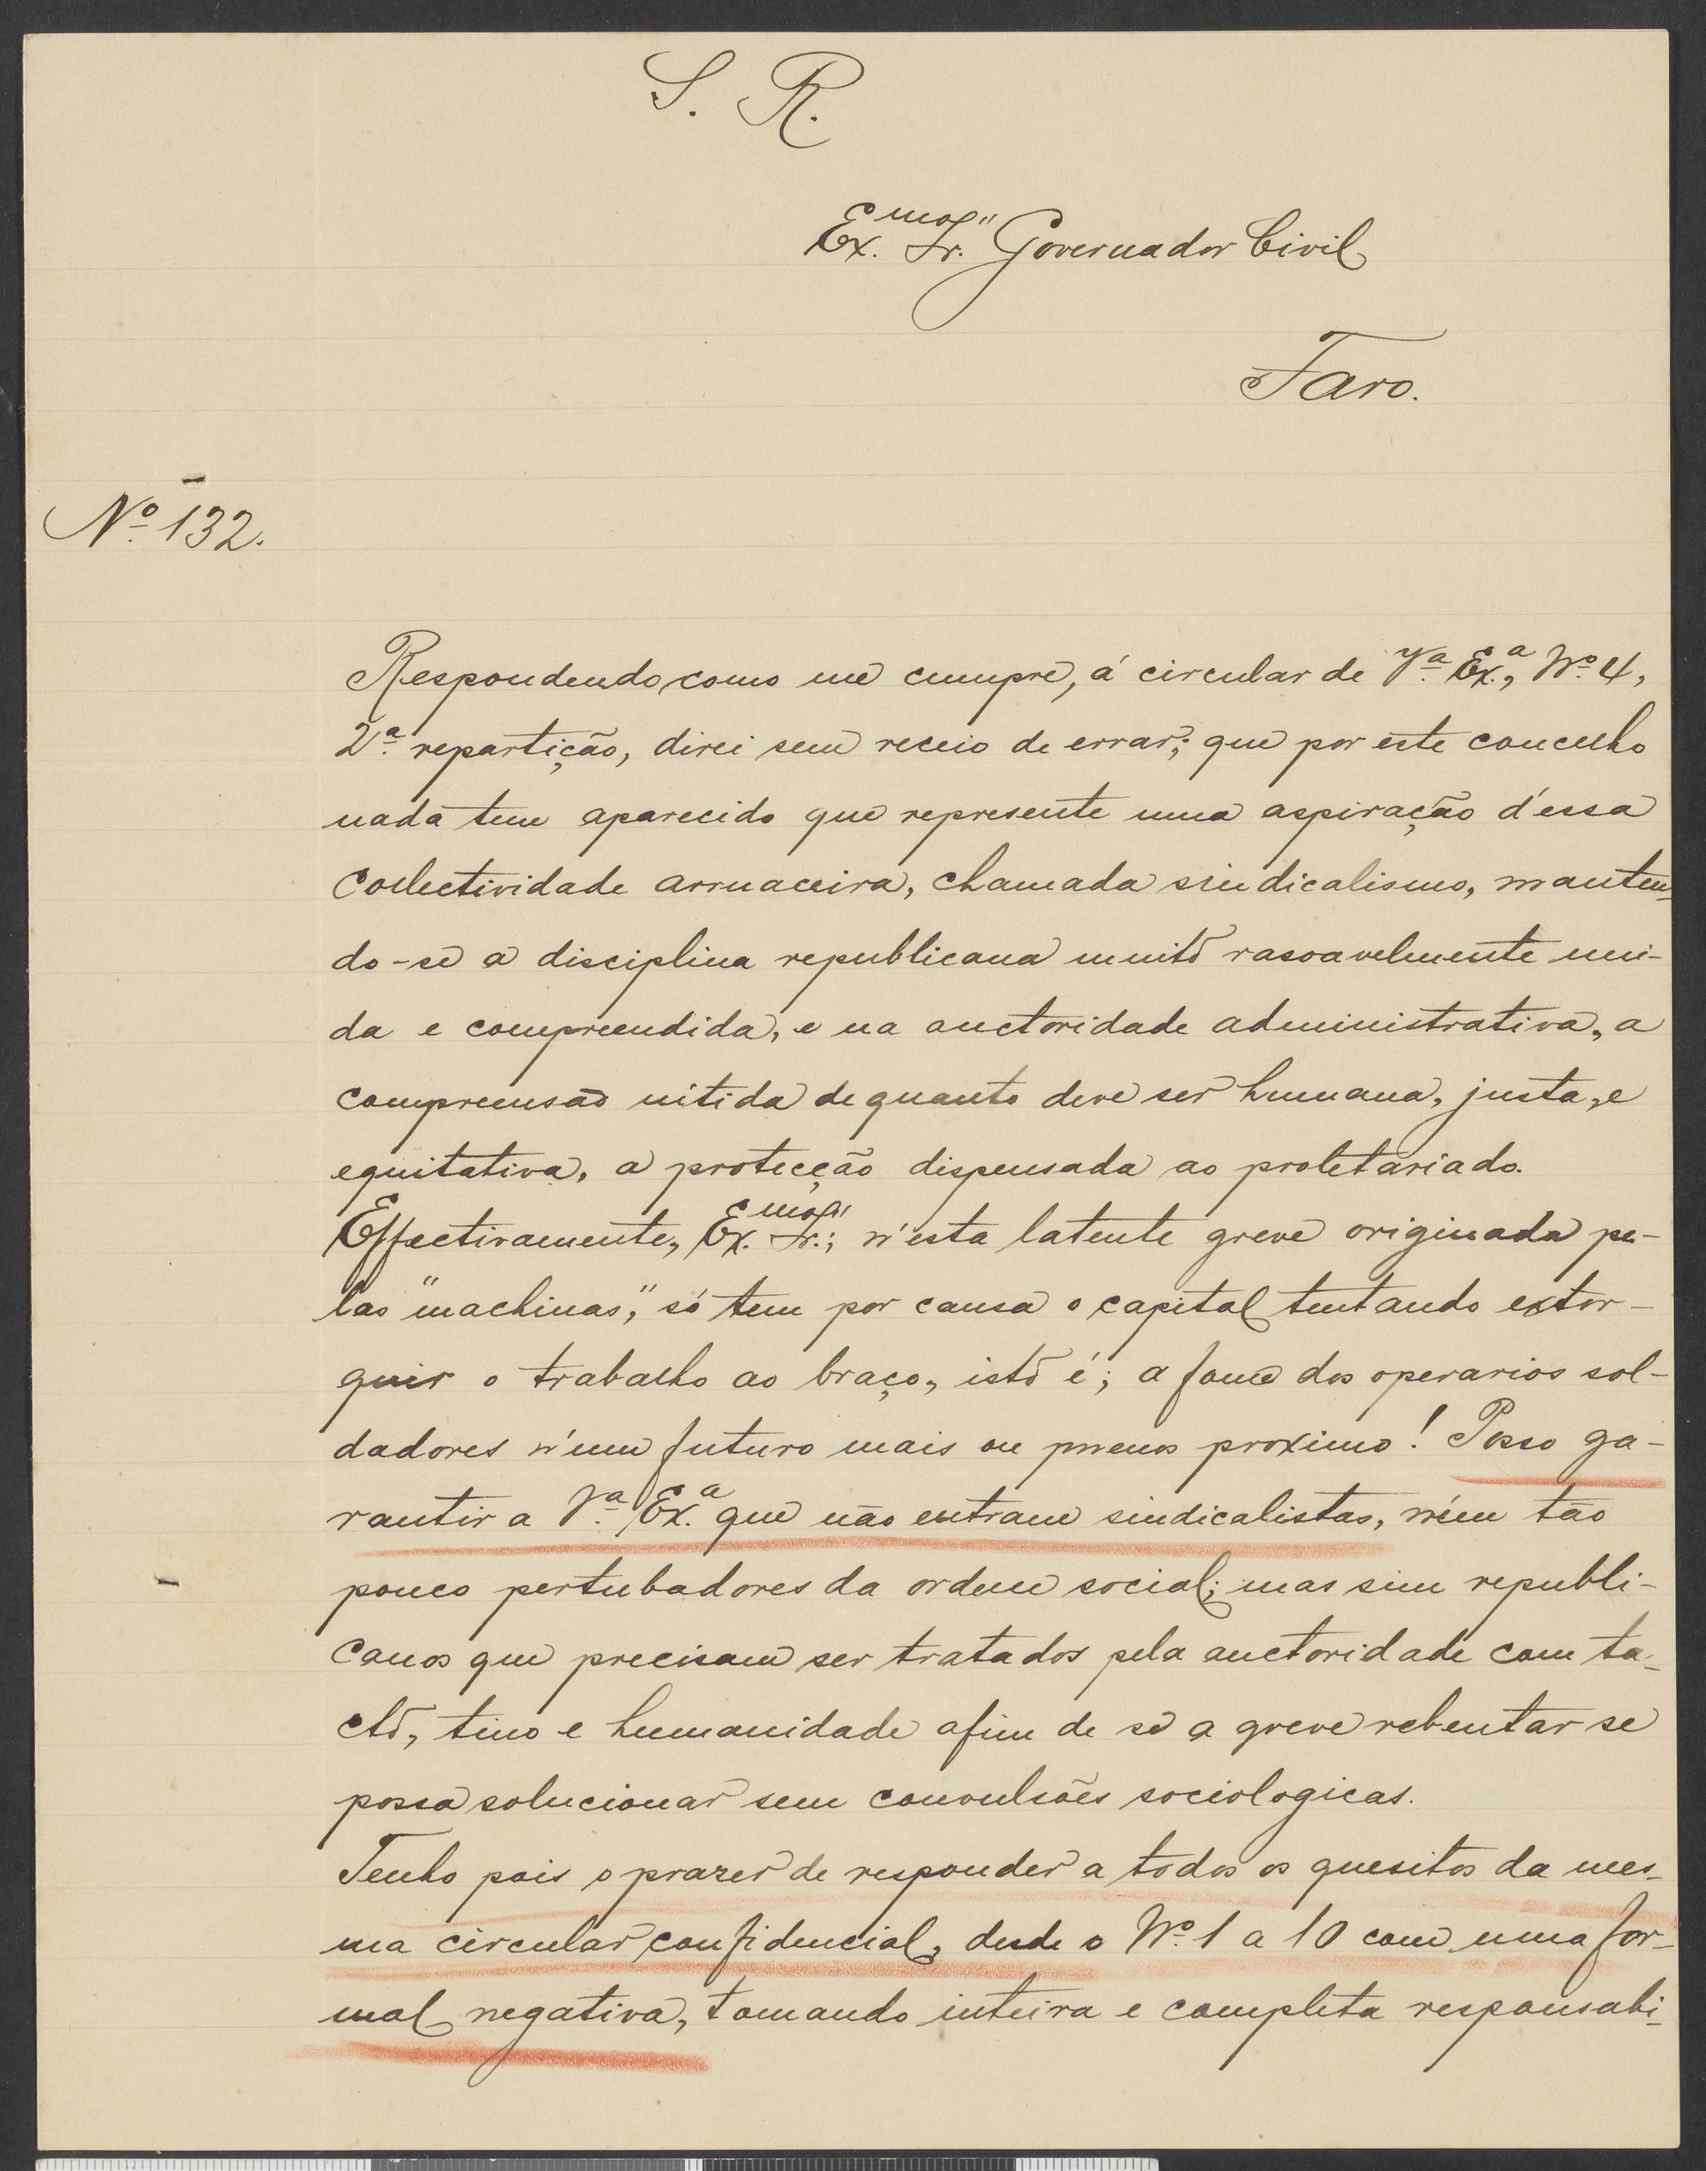 S. R.
Ex.mo Sr. Governador Civil
Faro.
Nº 132.
Respondendo, como me cumpre, á circular de V.ª Ex.ª, Nº 4,
2.ª repartição, direi sem receio de errar; que por este concelho
nada tem aparecido que represente uma aspiração d'essa
collectividade arruaceira, chamada sindicalismo, manten-
do-se a disciplina republicana muito rasoavelmente uni-
da e compreendida, e na auctoridade administrativa, a
compreensão nitida de quanto deve ser humana, justa, e
equitativa, a protecção dispensada ao proletariado.
Effectivamente, Ex.mo Sr.; n'esta latente greve originada pe-
las "machinas", só tem por causa o capital tentando extor-
quir o trabalho ao braço, isto é; a fome dos operarios sol-
dadores n'um futuro mais ou menos proximo! Posso ga-
rantir a V.ª Ex.ª que não entram sindicalistas, ném tão
pouco pertubadores da ordem social; mas sim republi-
canos que precisam ser tratados pela auctoridade com ta-
cto, tino e humanidade afim de se a greve rebentar se
possa solucionar sem convulsões sociologicas.
Tenho pois o prazer de responder a todos os quesitos da mes-
ma circular confidencial, desde o Nº 1 a 10 com uma for-
mal negativa, tomando inteira e completa responsabi-